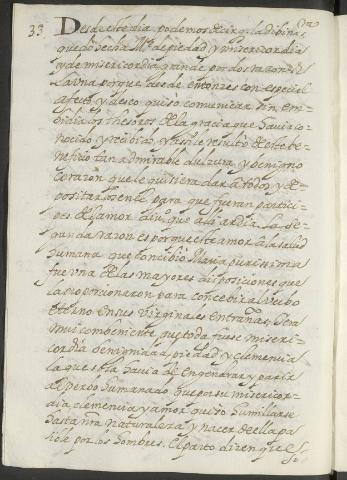 33 Desde este dia podemos decir q la dibina Sra
quedó hecha Me de piedad y misericordia
y de misericordia grande por dos razones
La una porque desde entonces con especial
afecto y deseo quiso comunicar sin em-
bidia los thesoros de la gracia que havia co-
nocido y recibido, y assi le resultó de este be-
neficio tan admirable dulzura, y benigno
corazon que le quisiera dar a todos y de-
positarlos en él para que fueran partici-
pes de el amor divino que alli ardia. La se-
gunda razon es porque este amor a la salud
humana que concibió Maria purissima
fue una de las mayores disposiciones que
la proporcionaron para concebir a el Verbo
eterno en sus virginales entrañas. Y era
mui combeniente que toda fuese miseri-
cordia benignidad, piedad y clemencia
la que sola havia de engendrar y parir
al Verbo humanado, que por su misericor-
dia clemencia y amor quiso humillarse
hasta nra naturaleza y nacer de ella pa-
sible por los hombres. El parto dicen que